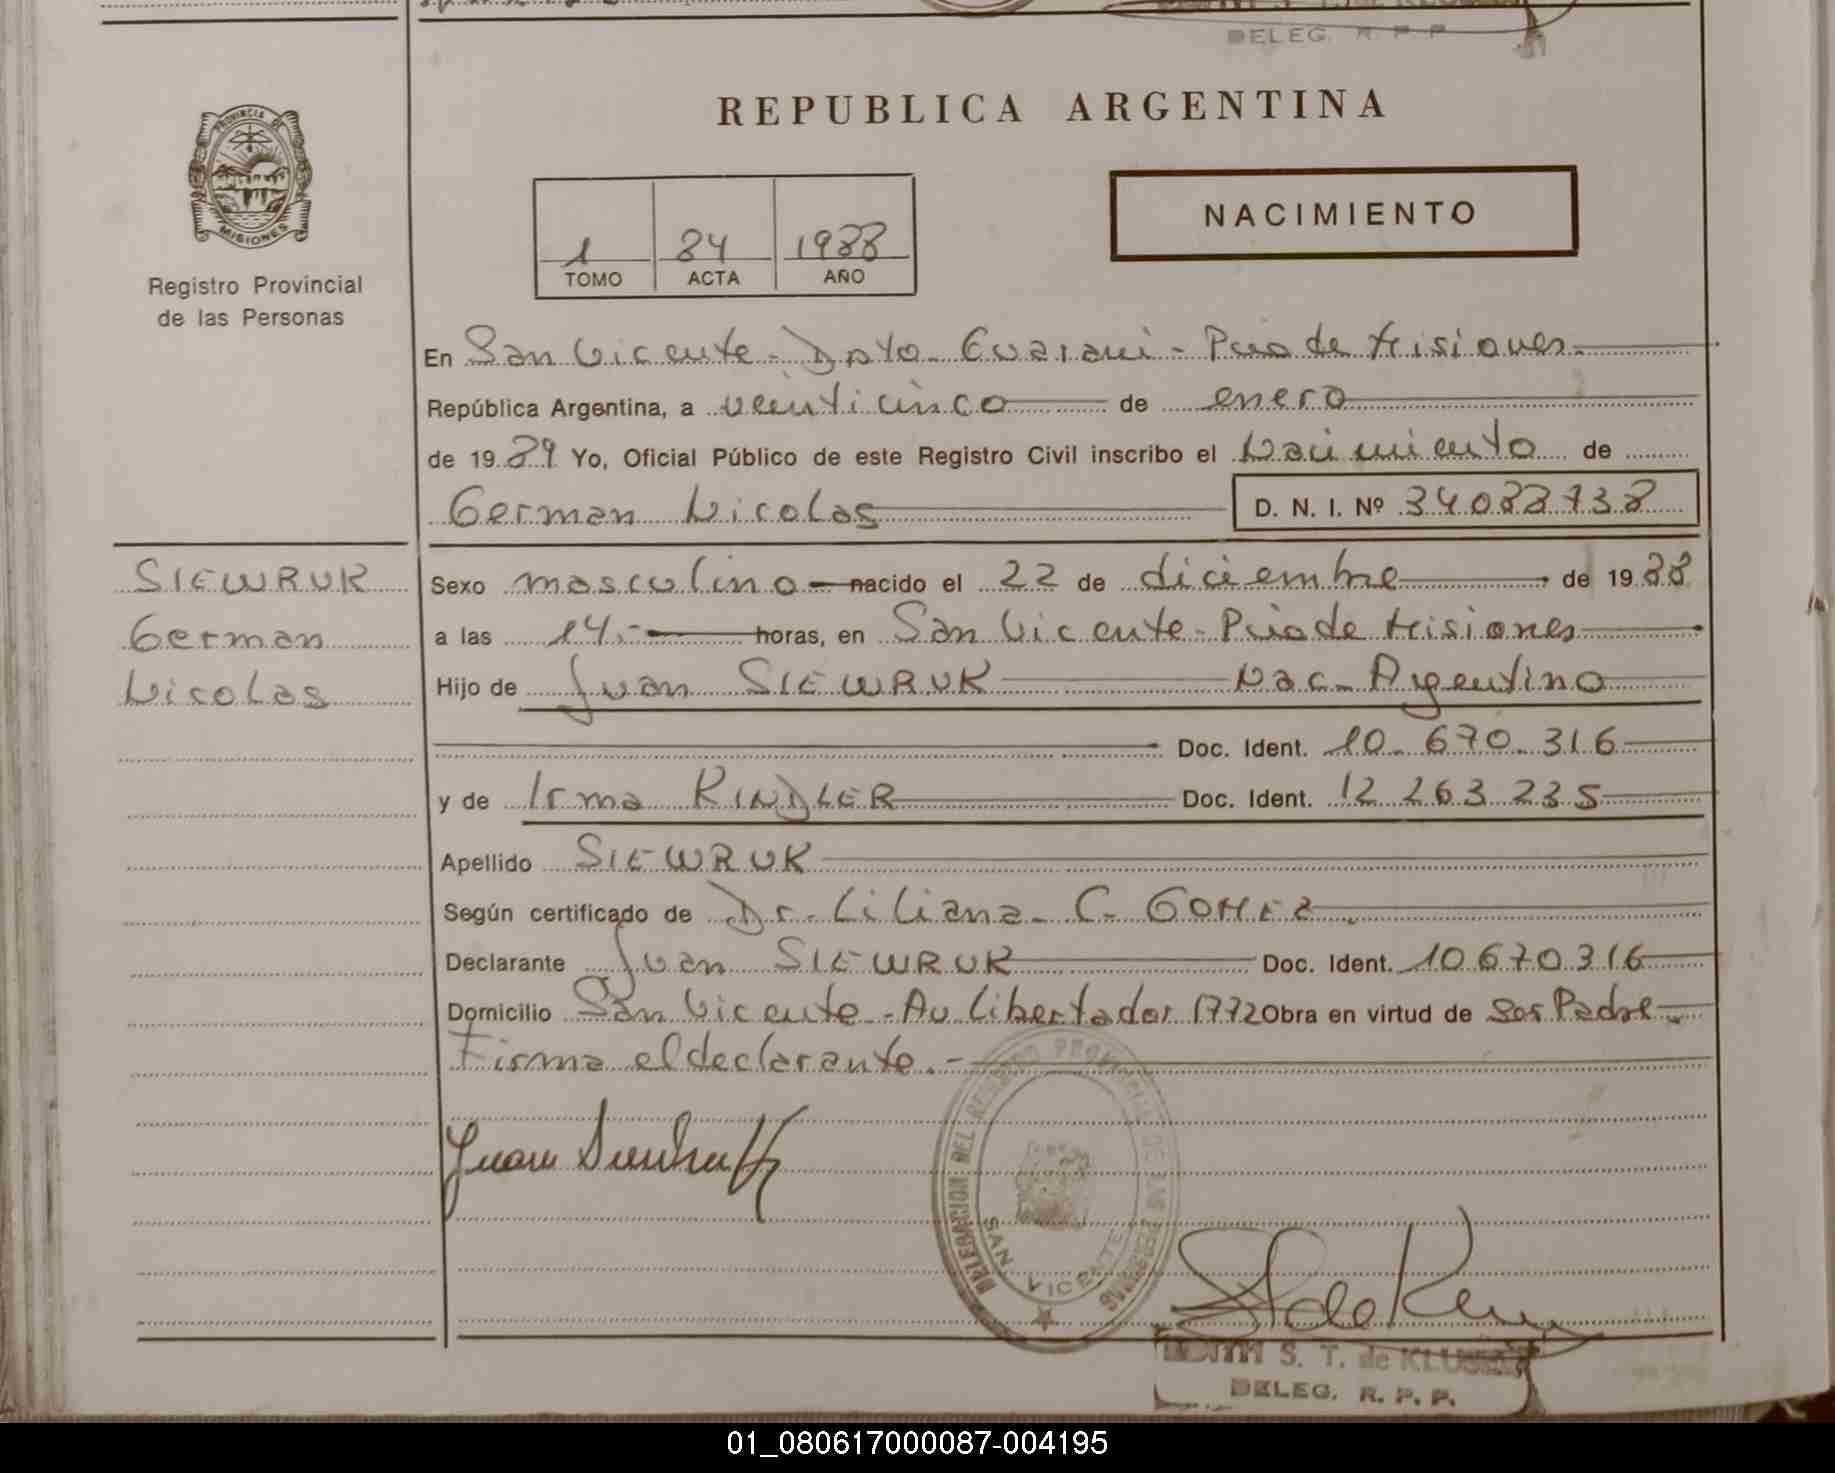 DELEG. R. P. P.
REPUBLICA ARGENTINA
PROVINCIA DE
MISIONES
Registro Provincial
de las Personas
1 84 1988
TOMO ACTA AÑO
NACIMIENTO
En San Vicente - Dpto Guarani - Pcia de Misiones.
República Argentina, a veinticinco de enero
de 1989 Yo, Oficial Público de este Registro Civil inscribo el Nacimiento de
German Nicolas D. N. I. Nº 34088738
SIEWRUK
German
Nicolas
Sexo masculino nacido el 22 de diciembre de 1988
a las 14.- horas, en San Vicente - Pcia de Misiones
Hijo de Juan SIEWRUK Nac. Argentino
Doc. Ident. 10.670.316
y de Irma KINDLER Doc. Ident. 12 263 235
Apellido SIEWRUK
Según certificado de Dr. Liliana C. GOMEZ
Declarante Juan SIEWRUK Doc. Ident. 10670316
Domicilio San Vicente - Av Libertador 1772 Obra en virtud de ser Padre
Firma el declarante. -
DELEGACION DEL REGISTRO PROVINCIAL DE LAS PERSONAS
SAN VICENTE
S. T. de
DELEG. R. P. P.
01_080617000087-004195